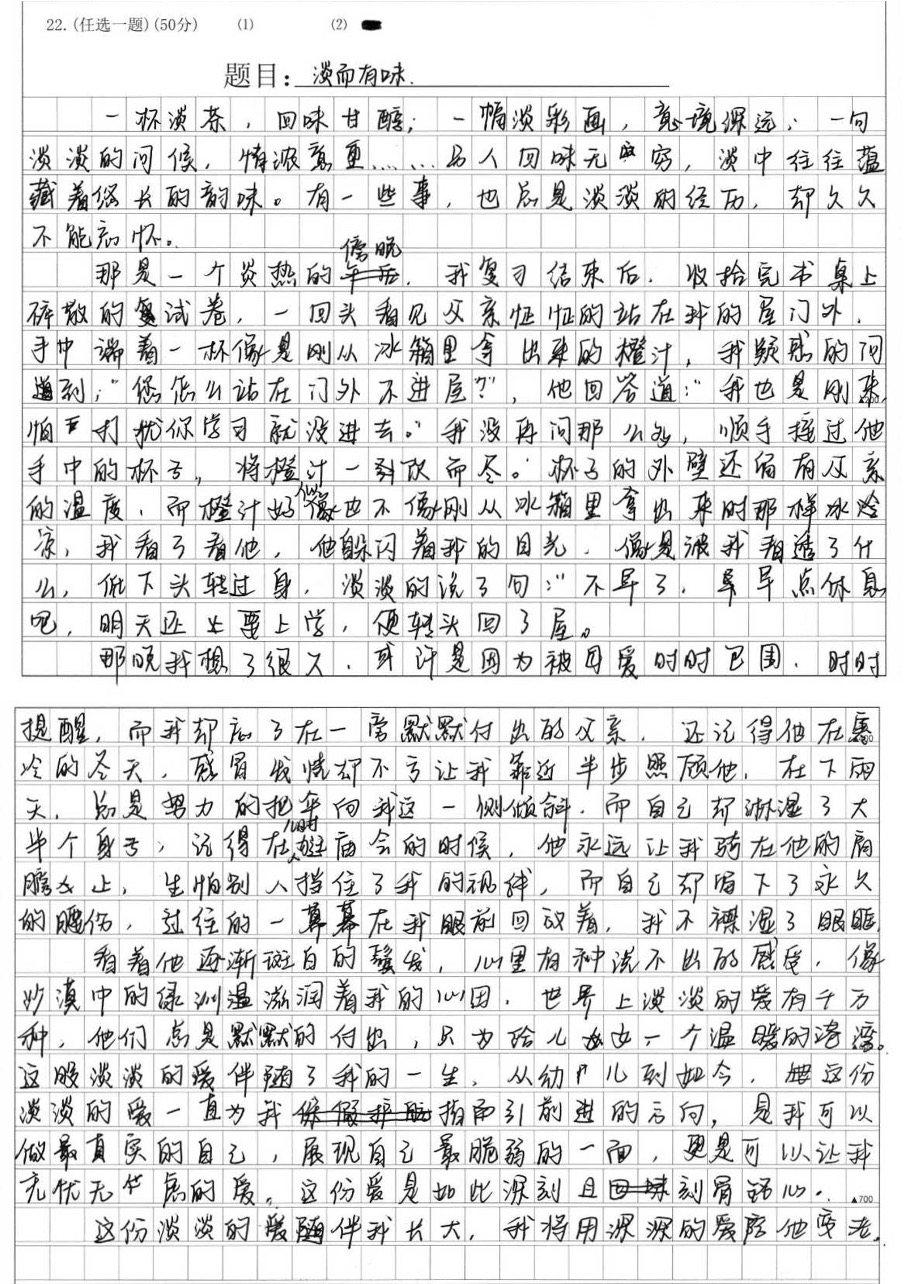 22.(任选一题)(50分) (1) (2)
题目：淡而有味.
一杯淡茶，回味甘醇；一幅淡彩画，意境深远；一句
淡淡的问候，情浓意更……另人回味无穷，淡中往往蕴
藏着悠长的韵味。有一些事，也总是淡淡的经历，却久久
不能忘怀。
那是一个炎热的傍晚，我复习结束后，收拾完书桌上
碎散的复试卷，一回头看见父亲怔怔的站在我的屋门外，
手中端着一杯像是刚从冰箱里拿出来的橙汁，我疑惑的问
道到：“您怎么站在门外不进屋？”，他回答道：“我也是刚来，
怕打扰你学习就没进去。”我没再问那么多，顺手接过他
手中的杯子，将橙汁一到饮而尽。杯子的外壁还留有父亲
的温度，而橙汁好似也不像刚从冰箱里拿出来时那样冰冷
凉，我看了看他，他躲闪着我的目光，像是被我看透了什
么，低下头转过身，淡淡的说了句：“不早了，早早点休息
吧，明天还要上学，便转头回了屋。
那晚我想了很久，或许是因为被母爱时时包围，时时
提醒，而我却忘了在一旁默默付出的父亲，还记得他在寒
冷的冬天，感冒发烧却不舍让我靠近半步照顾他，在下雨
天，总是努力的把伞向我这一侧倾斜，而自己却淋湿了大
半个身子，记得在儿时逛庙会的时候，他永远让我骑在他的肩
膀上，生怕别人挡住了我的视线，而自己却留下了永久
的腰伤，过往的一幕幕在我眼前回放着，我不襟湿了眼眶，
看着他逐渐斑白的鬓发，心里有种说不出的感受，像
沙漠中的绿洲温滋润着我的心田，世界上淡淡的爱有千万
种，他们总是默默的付出，只为给儿女一个温暖的港湾。
这股淡淡的爱伴随了我的一生，从幼儿到如今，这份
淡淡的爱一直为我指南引前进的方向，是我可以
做最真实的自己，展现自己最脆弱的一面，更是可以让我
无忧无虑的爱，这份爱是如此深刻且刻骨铭心。
▲700
这份淡淡的爱随伴我长大，我将用深深的爱陪他变老。